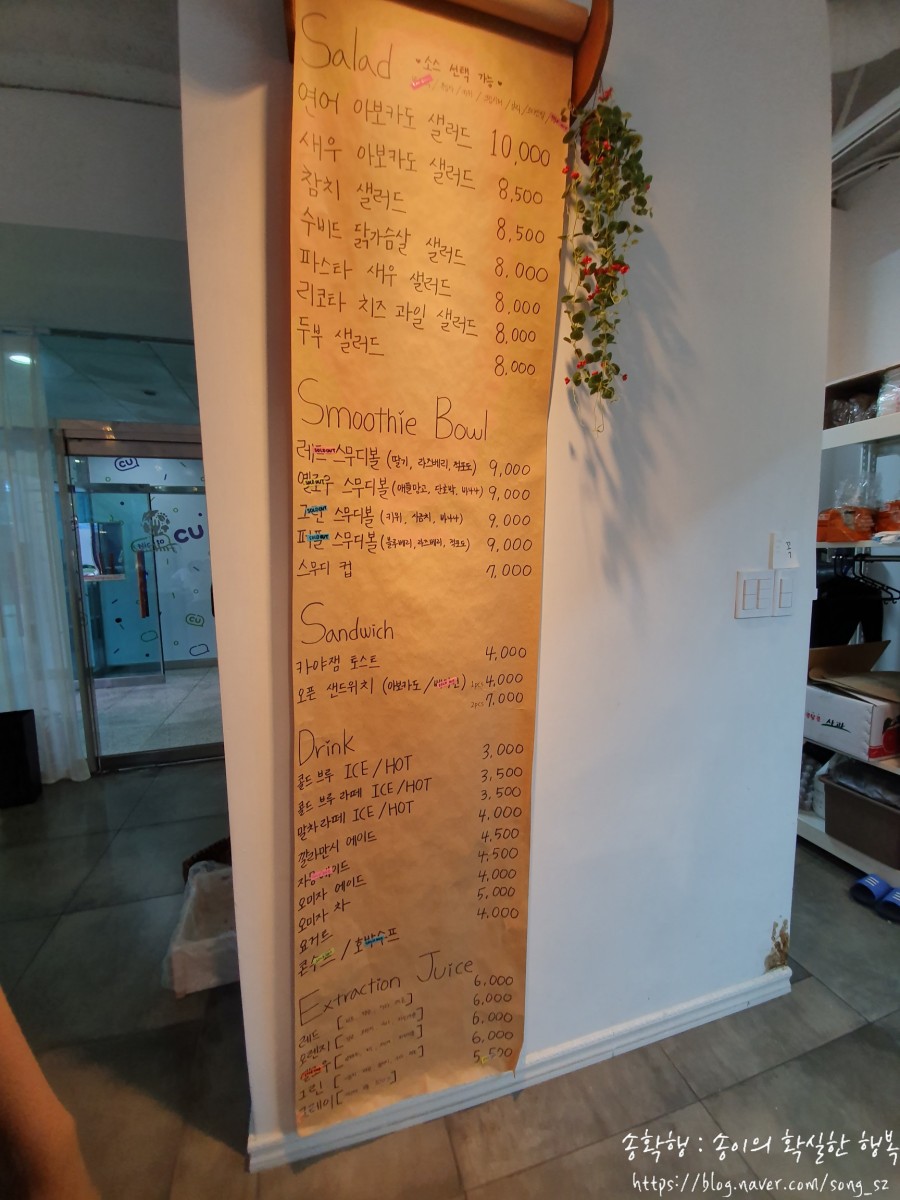 Salad
♥소스 선택 가능♥
연어 아보카도 샐러드 10,000
새우 아보카도 샐러드 8,500
참치 샐러드 8,500
수비드 닭가슴살 샐러드 8,000
파스타 새우 샐러드 8,000
리코타 치즈 과일 샐러드 8,000
두부 샐러드 8,000
Smoothie Bowl
레드 스무디볼 (딸기, 라즈베리, 적포도) 9,000
옐로우 스무디볼 (애플망고, 단호박, 바나나) 9,000
그린 스무디볼 (키위, 시금치, 바나나) 9,000
퍼플 스무디볼 (블루베리, 라즈베리, 적포도) 9,000
스무디 컵 7,000
Sandwich
카야잼 토스트 4,000
오픈 샌드위치 (아보카도 / 1pcs 4,000
2pcs 7,000
Drink
콜드브루 ICE / HOT 3,000
콜드브루 라떼 ICE / HOT 3,500
말차라떼 ICE / HOT 3,500
깔라만시 에이드 4,000
에이드 4,500
오미자 에이드 4,500
오미자 차 4,000
요거트 5,000
콘수프 / 호박수프 4,000
Extraction Juice
레드 6,000
오렌지 6,000
6,000
그린 6,000
그레이 5,500
CU
CU
CU
송확행 : 송이의 확실한 행복
https://blog.naver.com/song_sz